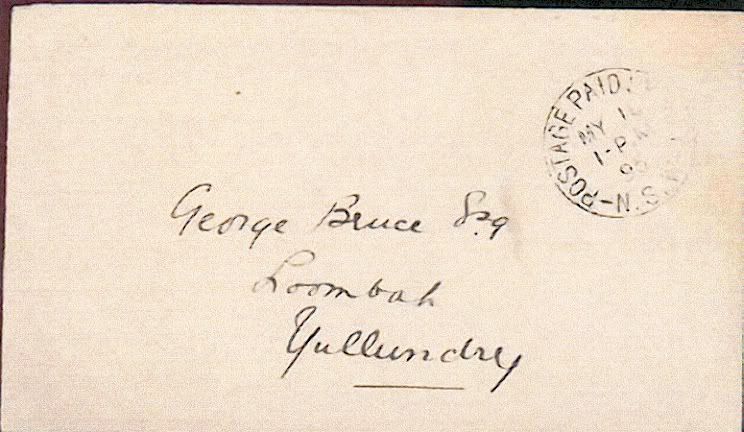 POSTAGE PAID
MY
1-P.M
N.S.W
George Bruce Esq
Loombah
Yullundry